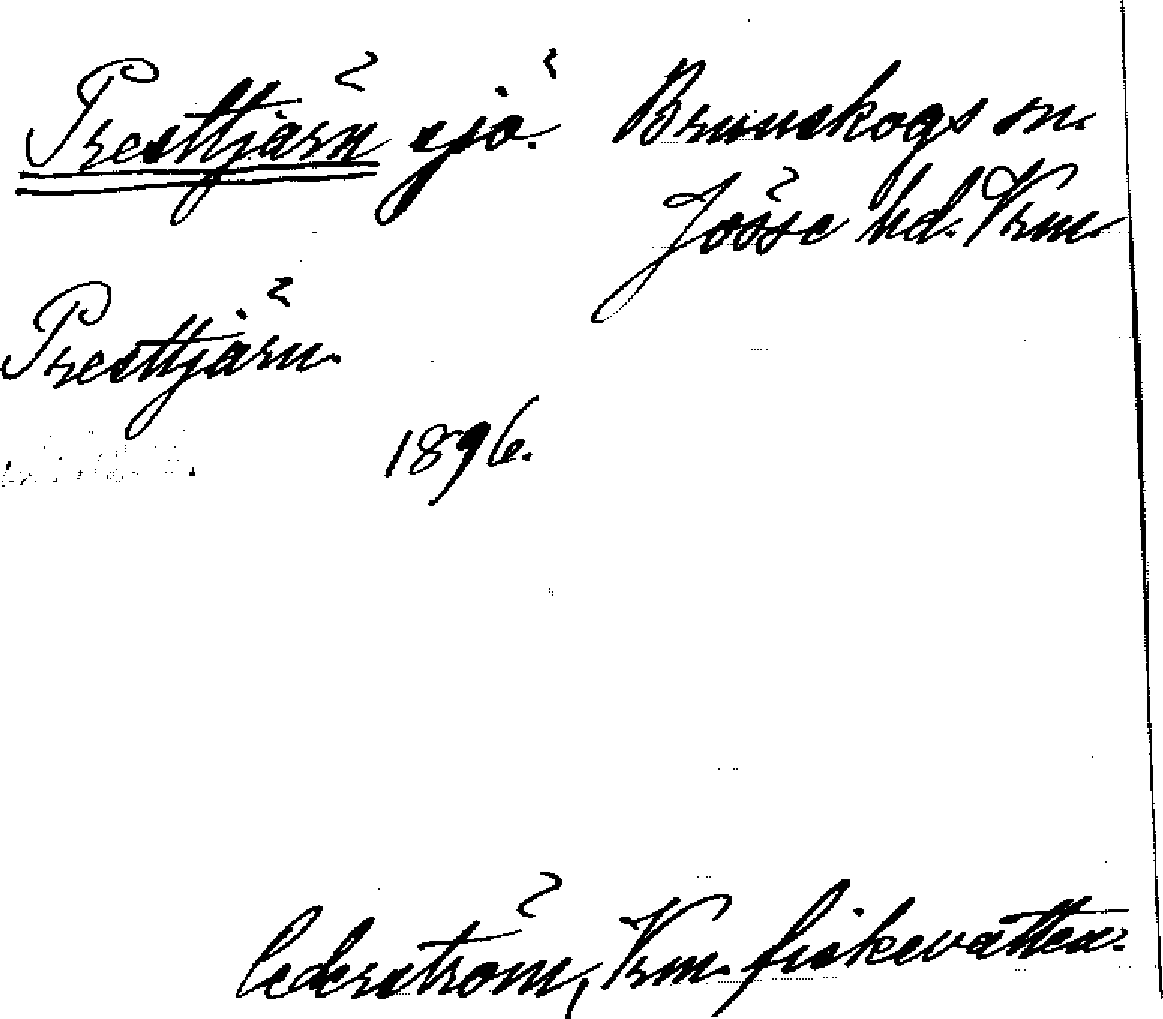 Presttjärn sjö. Brunskogs sn.
Jösse hd. Vrm.
Presttjärn.
1896.
Cederström, Vrm. fiskevatten.